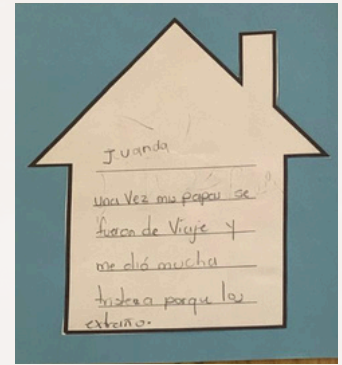 Juanda
una vez mis papas se
fueron de Viaje y
me dió mucha
tristeza porque los
extraño.